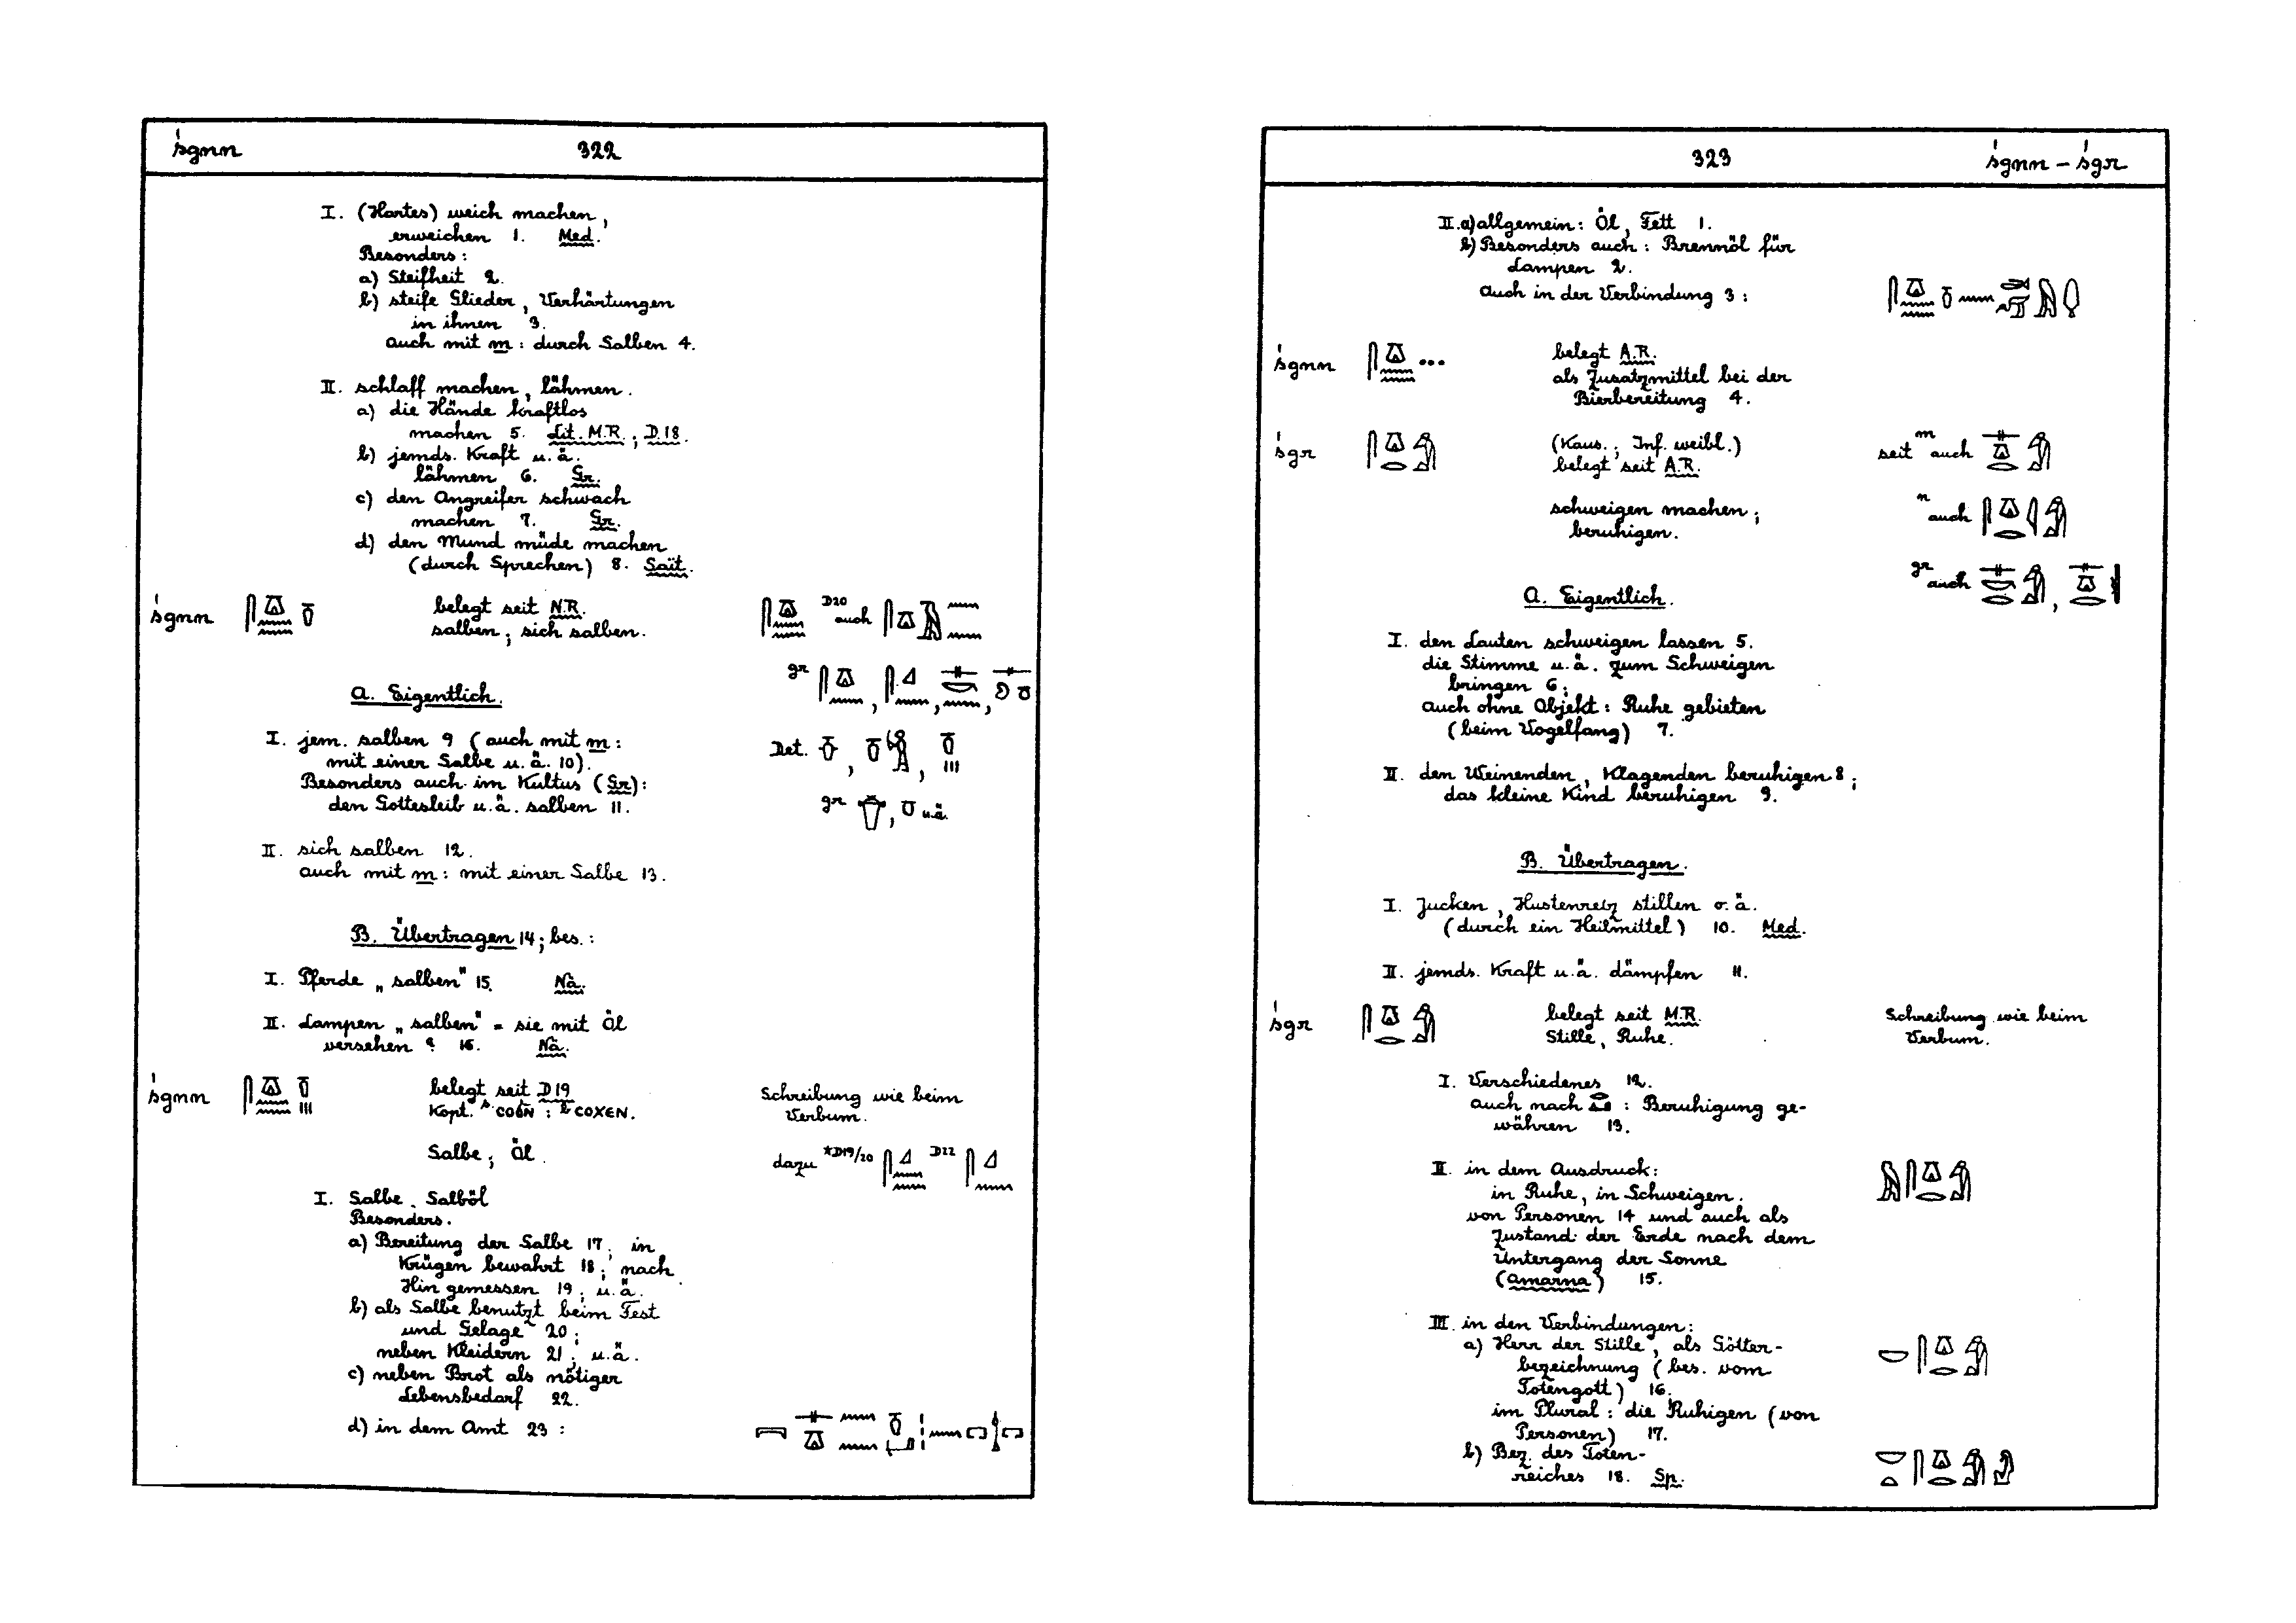 śgnn 322
I. (Hartes) weich machen,
erweichen 1. Med.
Besonders:
a) Steifheit 2.
b) steife Glieder, Verhärtungen
in ihnen 3.
auch mit m: durch Salben 4.
II. schlaff machen, lähmen.
a) die Hände kraftlos
machen 5. Lit. M.R.; D.18.
b) jemds. Kraft u.ä.
lähmen 6. Gr.
c) den Angreifer schwach
machen 7. Gr.
d) den Mund müde machen
(durch Sprechen) 8. Sait.
śgnn belegt seit N.R. D20 auch
salben; sich salben.
gr
A. Eigentlich.
I. jem. salben 9 (auch mit m: Det.
mit einer Salbe u.ä. 10).
Besonders auch im Kultus (Gr):
den Gottesleib u.ä. salben 11. gr u.ä.
II. sich salben 12.
auch mit m: mit einer Salbe 13.
B. Übertragen 14; bes.:
I. Pferde „salben" 15. Nä.
II. Lampen „salben" = sie mit Öl
versehen ? 16. Nä.
śgnn belegt seit D19 Schreibung wie beim
Kopt. S. ⲥⲟϭⲛ : B ⲥⲟⲭⲉⲛ. Verbum.
Salbe; Öl. dazu *D19/20 D22
I. Salbe, Salböl
Besonders.
a) Bereitung der Salbe 17; in
Krügen bewahrt 18; nach
Hin gemessen 19; u.ä.
b) als Salbe benutzt beim Fest
und Gelage 20;
neben Kleidern 21; u.ä.
c) neben Brot als nötiger
Lebensbedarf 22.
d) in dem Amt 23:
323 śgnn – śgr
II. a) allgemein: Öl, Fett 1.
b) Besonders auch: Brennöl für
Lampen 2.
Auch in der Verbindung 3:
śgnn belegt A.R.
als Zusatzmittel bei der
Bierbereitung 4.
śgr (Kaus.; Inf. weibl.) seit m auch
belegt seit A.R.
schweigen machen; n auch
beruhigen.
gr auch
A. Eigentlich.
I. den Lauten schweigen lassen 5.
die Stimme u.ä. zum Schweigen
bringen 6;
auch ohne Objekt: Ruhe gebieten
(beim Vogelfang) 7.
II. den Weinenden, Klagenden beruhigen 8;
das kleine Kind beruhigen 9.
B. Übertragen.
I. Jucken, Hustenreiz stillen o.ä.
(durch ein Heilmittel) 10. Med.
II. jemds. Kraft u.ä. dämpfen 11.
śgr belegt seit M.R. Schreibung wie beim
Stille, Ruhe. Verbum.
I. Verschiedenes 12.
auch nach : Beruhigung ge-
währen 13.
II. in dem Ausdruck:
in Ruhe, in Schweigen.
von Personen 14 und auch als
Zustand der Erde nach dem
Untergang der Sonne
(Amarna) 15.
III. in den Verbindungen:
a) Herr der Stille, als Götter-
bezeichnung (bes. vom
Totengott) 16.
im Plural: die Ruhigen (von
Personen) 17.
b) Bez. des Toten-
reiches 18. Sp.